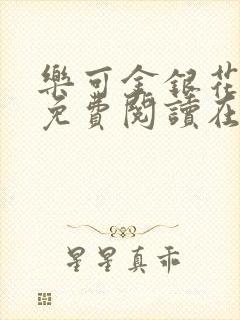 樂可金銀花
免費閱讀在
星星真乖